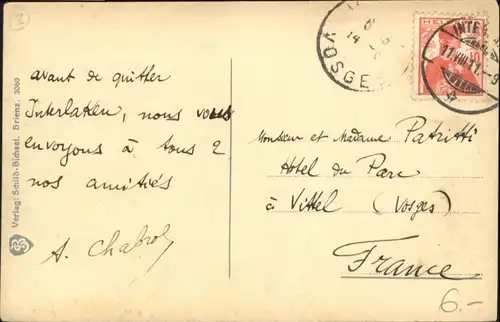 2
avant de quitter
Interlaken, nous vous
envoyons à tous 2
nos amitiés
A. Chabrol
Verlag: Schild-Bichsel, Brienz. 3060
VOSGES
14
HELVETIA
INTERL
11.VIII.11.-9
Monsieur et Madame Patritti
Hôtel du Parc
à Vittel (Vosges)
France
6.-